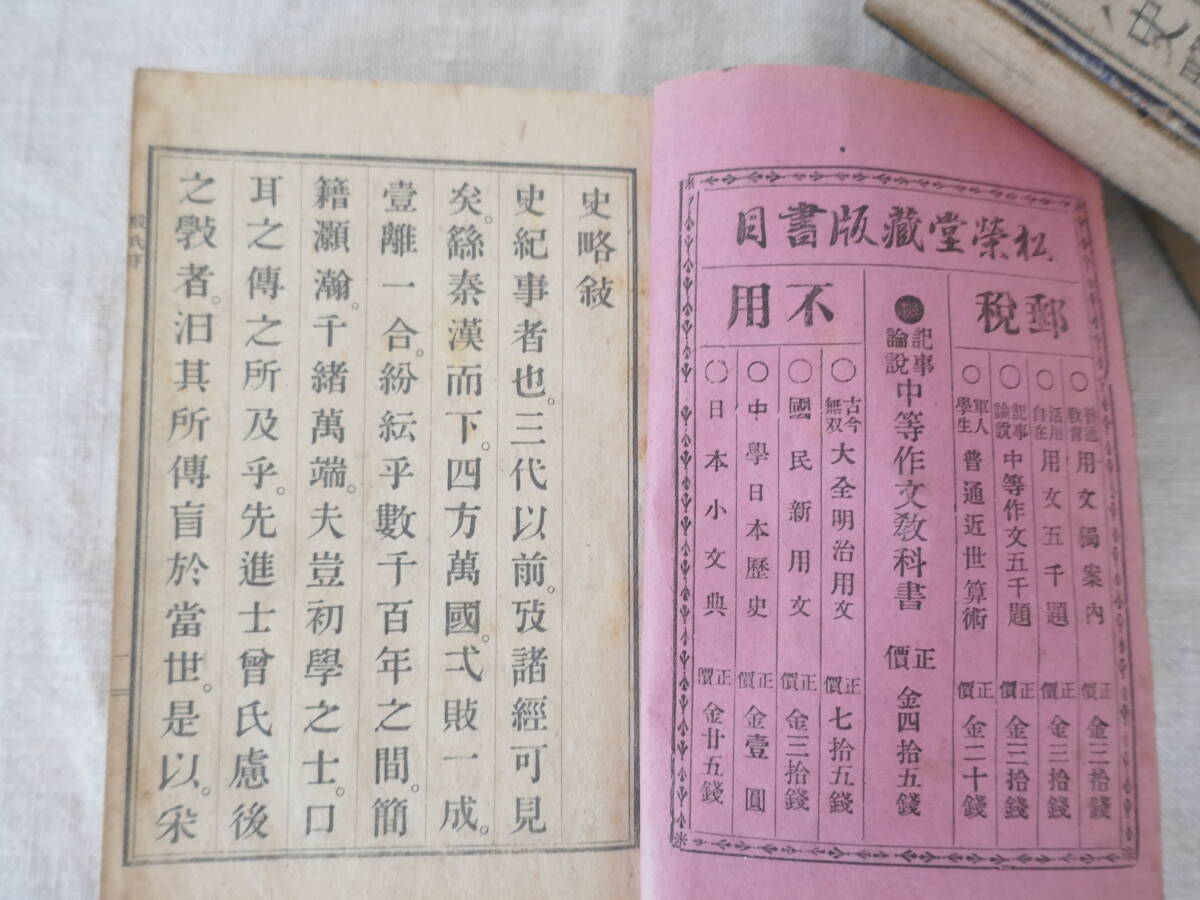 松榮堂藏版書目
郵稅
不用
○普通教育用文獨案內 正價金三拾錢
○活用自在用文五千題 正價金三拾錢
○記事論說中等作文五千題 正價金三拾錢
○軍人學生普通近世算術 正價金二十錢
記事論說中等作文教科書 正價金四拾五錢
○古今無双大全明治用文 正價七拾五錢
○國民新用文 正價金三拾錢
○中學日本歷史 正價金壹圓
○日本小文典 正價金廿五錢
史略敍
史紀事者也。三代以前。攷諸經可見
矣。繇秦漢而下。四方萬國。弍敗一成。
壹離一合。紛紜乎數千百年之間。簡
籍灝瀚。千緒萬端。夫豈初學之士。口
耳之傳之所及乎。先進士曾氏慮後
之斅者。汩其所傳。盲於當世。是以。采